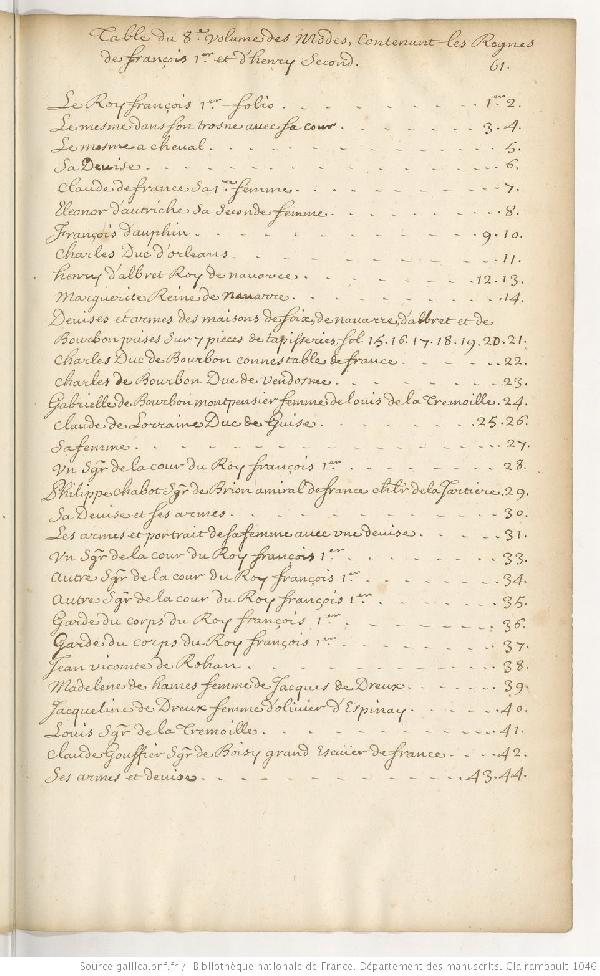 Table du 8.e volume des Modes, Contenant les Regnes
de françois 1.er et d'henry Second.
61.
Le Roy françois 1.er folio . . . . . . . . 1.er 2.
Le mesme dans son trosne avec sa cour . . . . . . . 3. 4.
Le mesme a cheval . . . . . . . . . . 5.
Sa Devise . . . . . . . . . . . 6.
Claude de france Sa 1.re femme . . . . . . . . 7.
Eleonor d'autriche Sa Seconde femme . . . . . . . 8.
François Dauphin . . . . . . . . . . 9. 10.
Charles Duc d'orleans . . . . . . . . . . 11.
henry d'albret Roy de navarre . . . . . . . 12. 13.
Marguerite Reine de navarre . . . . . . . . 14.
Devises et armes des maisons de foix, de navarre, d'albret et de
Bourbon prises Sur 7 pieces de tapisseries, fol. 15. 16. 17. 18. 19. 20. 21.
Charles Duc de Bourbon connestable de france . . . . . 22.
Charles de Bourbon Duc de Vendosme . . . . . . . 23.
Gabrielle de Bourbon montpensier femme de louis de la Tremoille . 24.
Claude de Lorraine Duc de Guise . . . . . . . 25. 26.
Sa femme . . . . . . . . . . . 27.
Vn Sgr. de la cour du Roy françois 1.er . . . . . . 28.
Philippe Chabot Sgr. de Brion amiral de france et de la Jartiere . 29.
Sa Devise et ses armes . . . . . . . . . . 30.
Les armes et portrait de sa femme avec vne devise . . . . 31.
Vn Sgr. de la cour du Roy françois 1.er . . . . . . 33.
autre Sgr. de la cour du Roy françois 1.er . . . . . . 34.
autre Sgr. de la cour du Roy françois 1.er . . . . . . 35.
Garde du corps du Roy françois 1.er . . . . . . 36.
Garde du corps du Roy françois 1.er . . . . . . 37.
Jean vicomte de Rohan . . . . . . . . . 38.
Madelene de haines femme de Jacques de Dreux . . . . . 39.
Jacqueline de Dreux femme d'olivier d'Espinay . . . . . 40.
Louis Sgr. de la Tremoille . . . . . . . . . 41.
Claude Gouffier Sgr. de Boisy grand Escuier de france . . . . 42.
Ses armes et devise . . . . . . . . . . 43. 44.
Source gallica.bnf.fr / Bibliothèque nationale de France. Département des manuscrits. Clairambault 1046